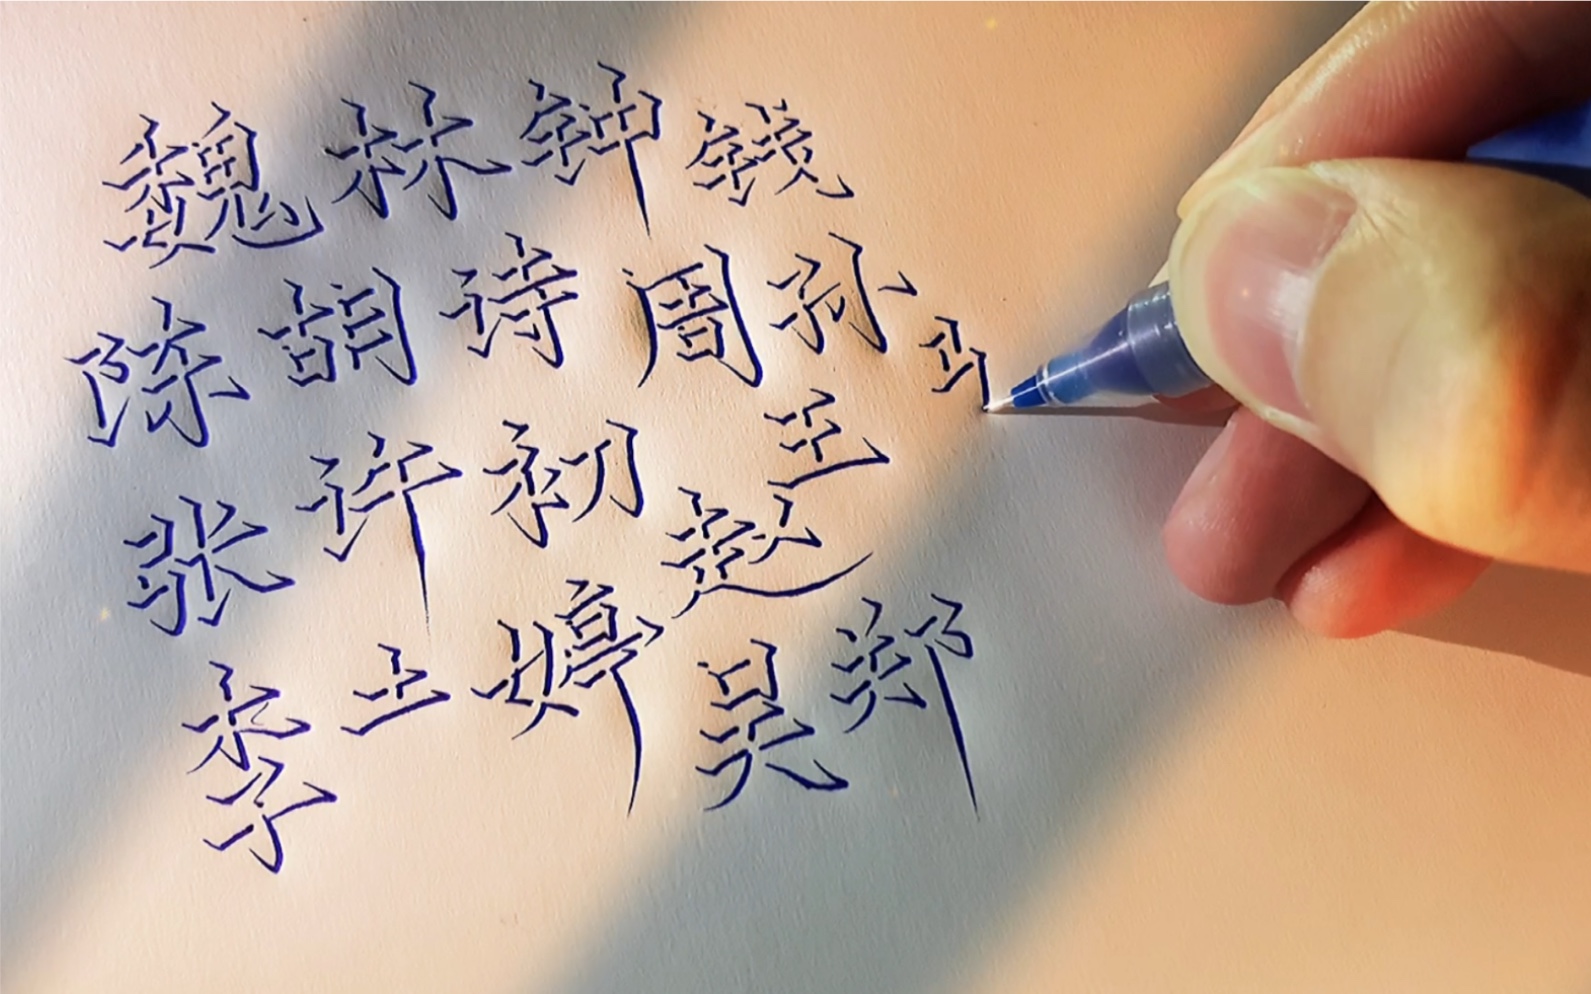 魏林钟钱
陈胡诗周孙
张许初赵王
李上婷吴郑